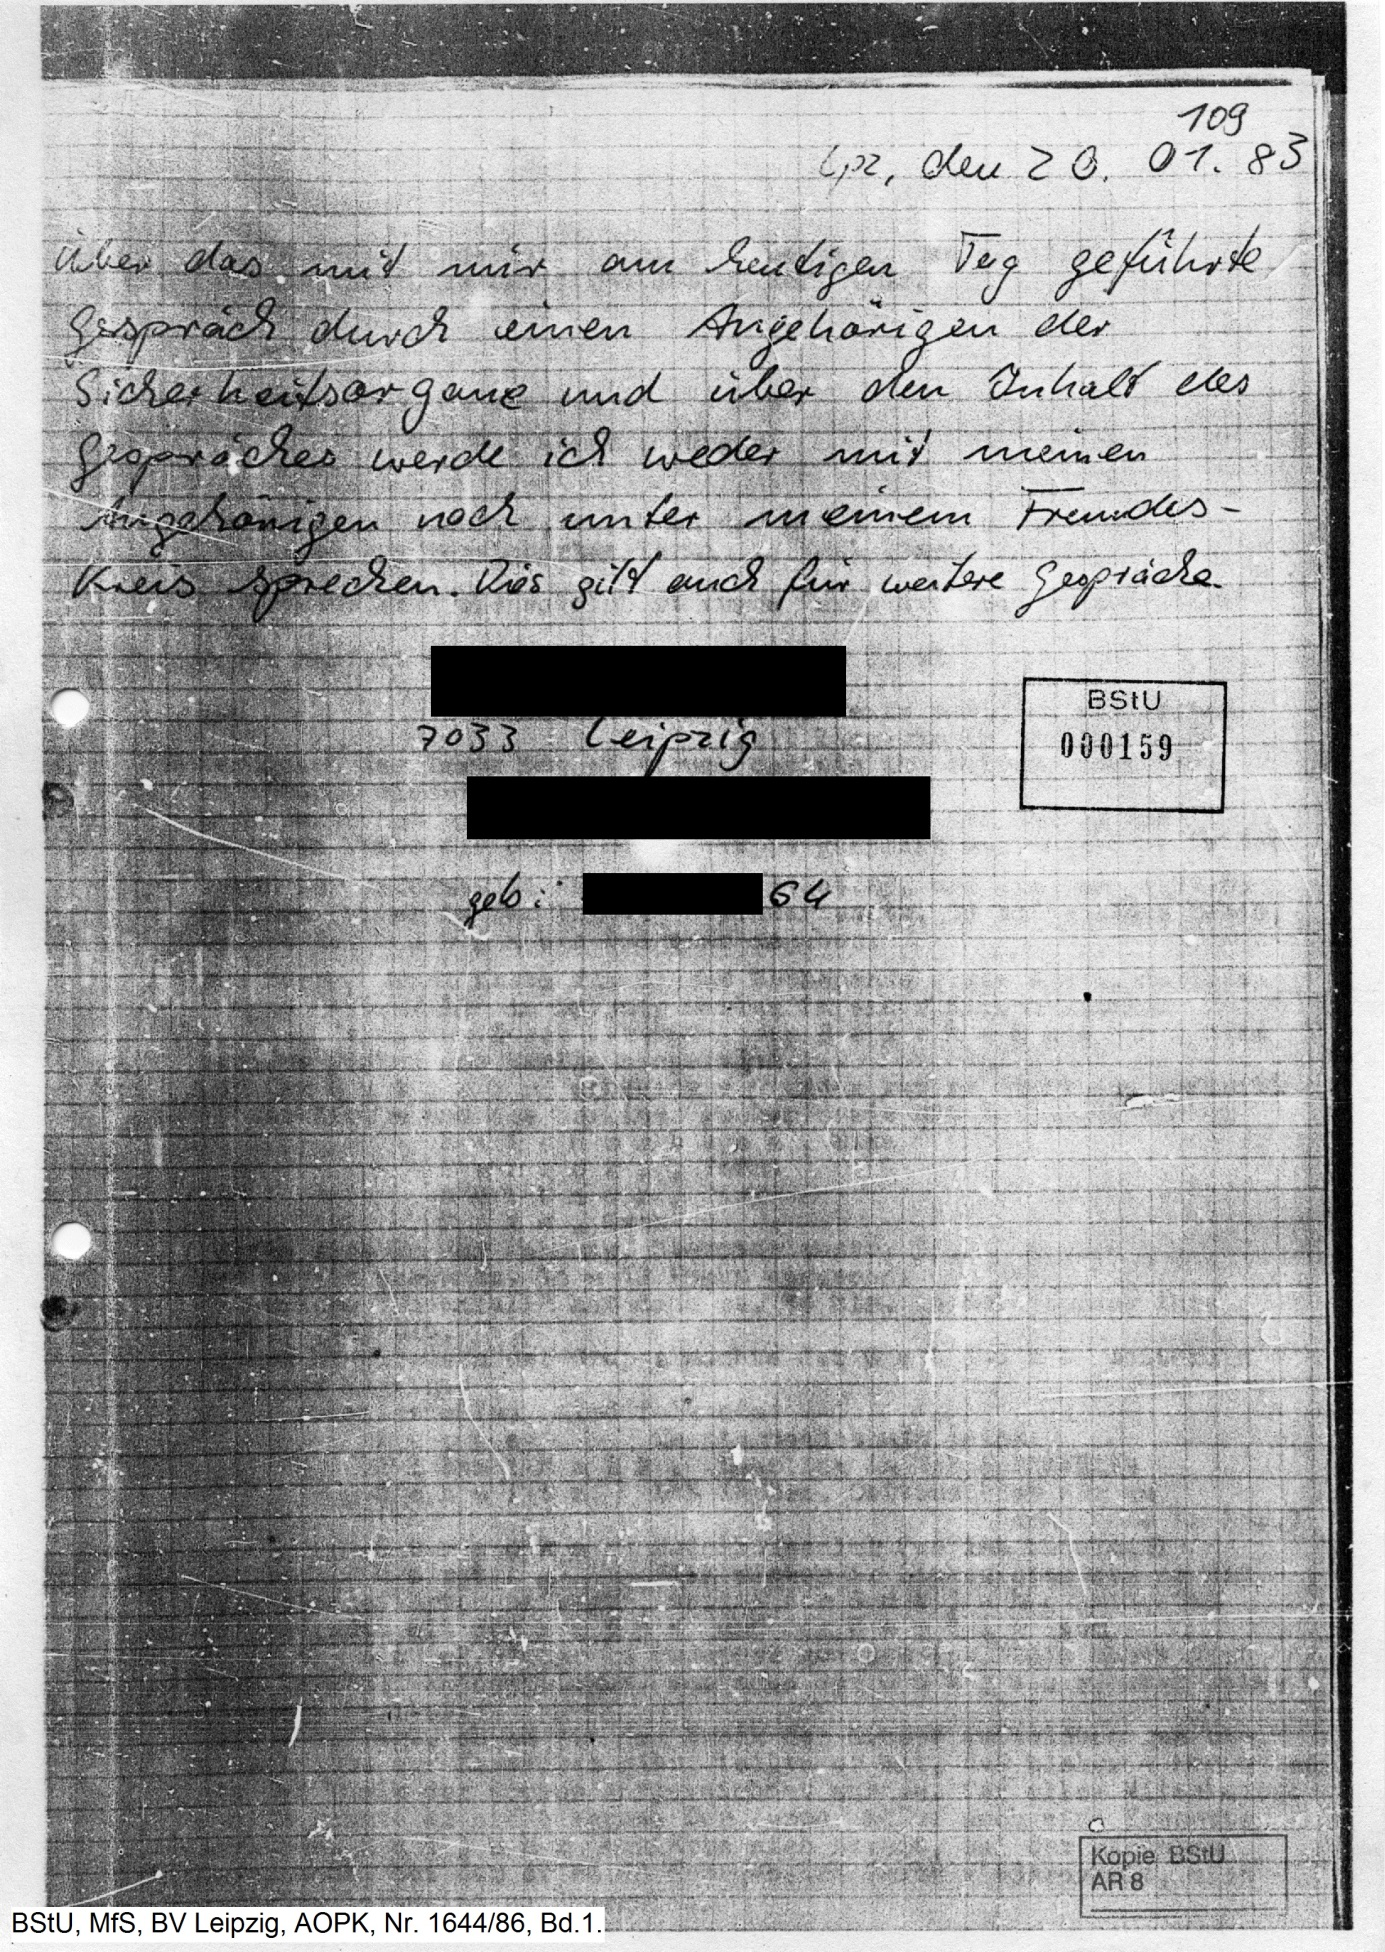 109
Lpz, den 20. 01. 83
über das mit mir am heutigen Tag geführte
Gespräch durch einen Angehörigen der
Sicherheitsorgane und über den Inhalt des
Gespräches werde ich weder mit meinen
Angehörigen noch unter meinem Freundes-
Kreis sprechen. Dies gilt auch für weitere Gespräche.
7033 Leipzig
BStU
000159
geb: 64
Kopie BStU
AR 8
BStU, MfS, BV Leipzig, AOPK, Nr. 1644/86, Bd.1.